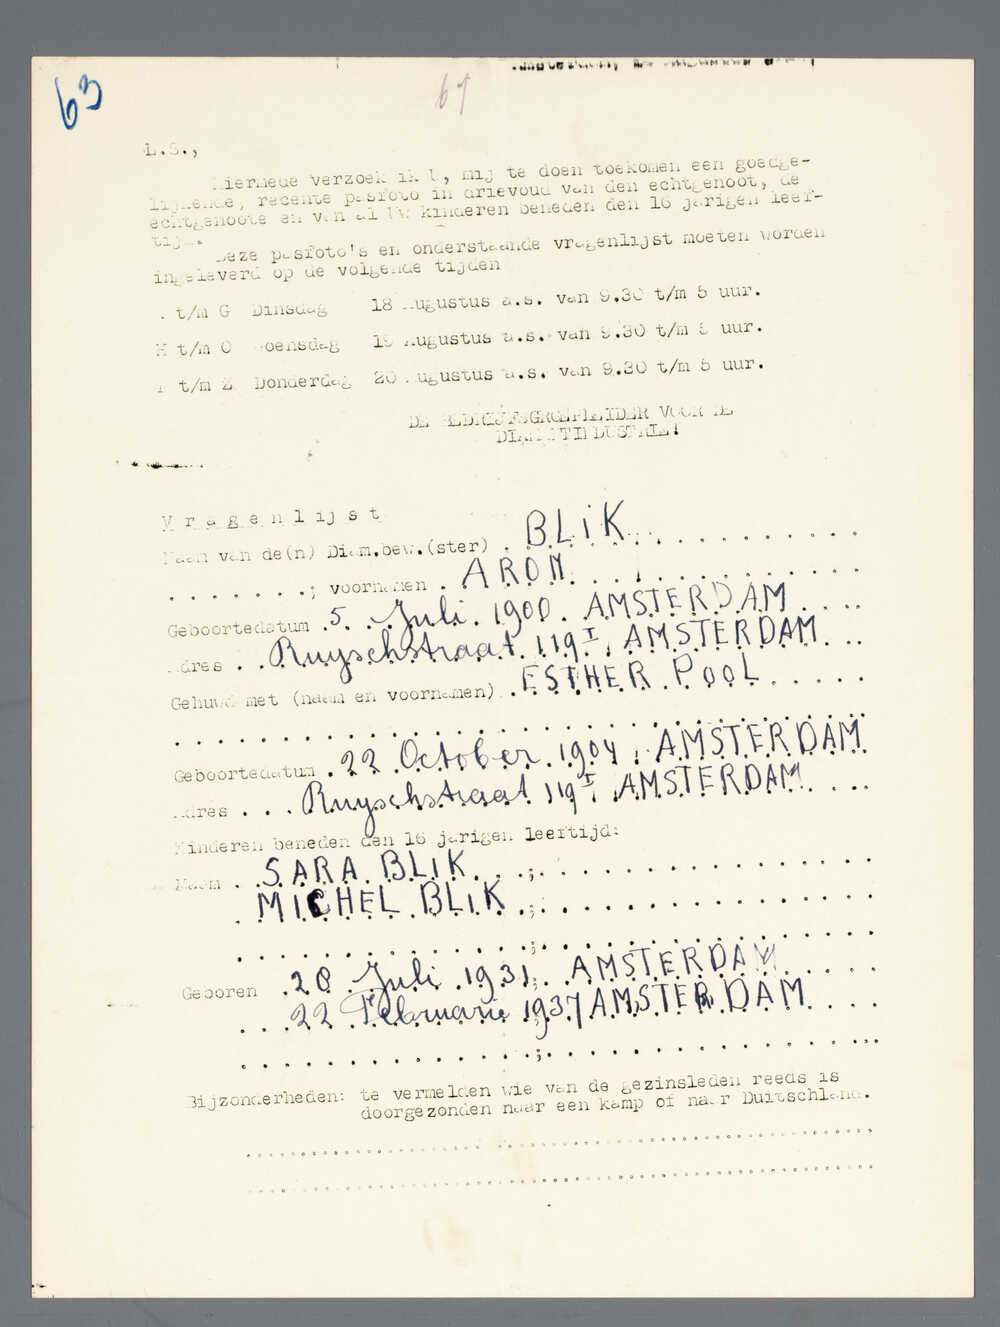 63
61
L.S.,
Hiermede verzoek ik U, mij te doen toekomen een goedge-
lijkende, recente pasfoto in drievoud van den echtgenoot, de
echtgenoote en van al Uw kinderen beneden den 16 jarigen leef-
tijd.
Deze pasfoto's en onderstaande vragenlijst moeten worden
ingeleverd op de volgende tijden
t/m G Dinsdag 18 Augustus a.s. van 9.30 t/m 5 uur.
H t/m O Woensdag 19 Augustus a.s. van 9.30 t/m 5 uur.
P t/m Z Donderdag 20 Augustus a.s. van 9.30 t/m 5 uur.
DE BEDRIJFSGROEPLEIDER VOOR DE
DIAMANTINDUSTRIE!
Vragenlijst
Naam van de(n) Diam.bew.(ster) . BLiK . . . . . . . .
. . . . . . . ; voornamen . ARON . . . . . . . . . .
Geboortedatum .5. Juli 1900. AMSTERDAM . . . .
Adres . . Ruyschstraat 119I, AMSTERDAM . . .
Gehuwd met (naam en voornamen) . ESTHER POOL . . . . .
. . . . . . . . . . . . . . . . . . . . . . . .
Geboortedatum . 22 October 1904, AMSTERDAM
Adres . . . Ruyschstraat 119I, AMSTERDAM . . .
Kinderen beneden den 16 jarigen leeftijd:
Naam . . SARA BLiK . . . ; . . . . . . . . . .
. MICHEL BLiK . ; . . . . . . . . . .
. . . . . . . . . . . . ; . . . . . . . . . . .
Geboren . 28 Juli 1931; AMSTERDAM . . . .
. . . 22 Februarie 1937 AMSTERDAM . . .
. . . . . . . . . . . . ; . . . . . . . . . . .
Bijzonderheden: te vermelden wie van de gezinsleden reeds is
doorgezonden naar een kamp of naar Duitschland.